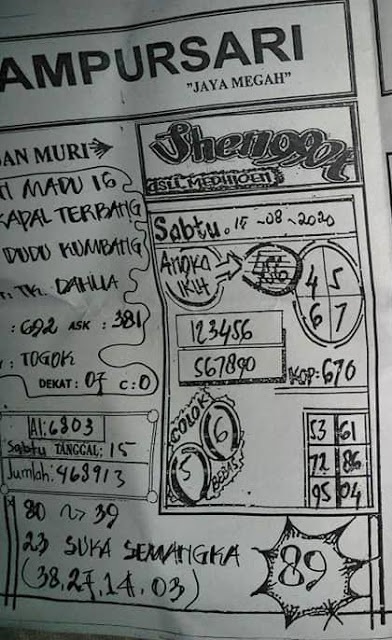 AMPURSARI
"JAYA MEGAH"
AN MURI
MADU 16
KAPAL TERBANG
DUDU KUMBANG
TK. DAHLIA
: 692 ASK : 381
: TOGOK
DEKAT : 07 C : 0
AI : 6803
Sabtu TANGGAL : 15
Jumlah : 468913
80 ~> 39
23 SUKA SEMANGKA
(38, 27, 14, 03)
Shenggot
ASLI
Sabtu. 15 - 08 - 2020
ANGKA
4 5
6 7
123456
567890
KOP : 670
COLOK
5 6
BEBAS
53 61
72 86
95 04
89